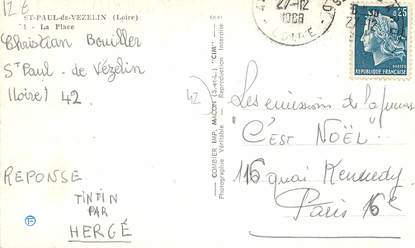 12 €
ST-PAUL-de-VEZELIN (Loire)
1 - La Place
Christian Bouiller
St Paul - de Vézelin
(Loire) 42
42
REPONSE
TINTIN
PAR
HERGÉ
COMBIER IMP. MACON (S.-et-L.) "CIM"
Photographie Véritable - Reproduction Interdite
27-12
1968
LOIRE
0,25
REPUBLIQUE FRANÇAISE
Les émissions de la jeunesse
"C'EST NOËL"
116 quai Kennedy
Paris 16e